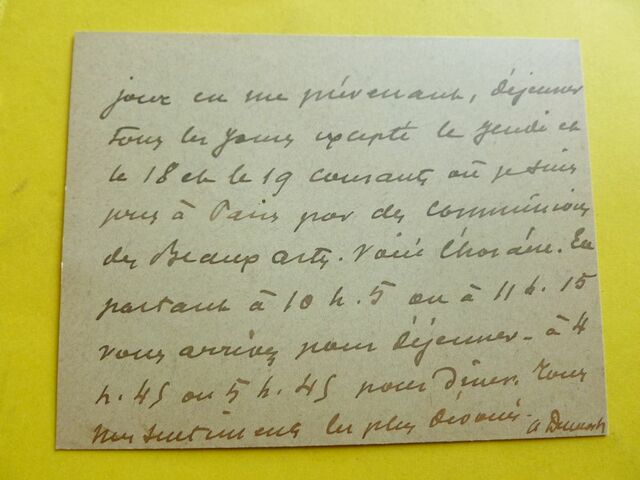 jour en me prévenant, déjeuner
tous les jours excepté le jeudi et
le 18 et le 19 courants où je suis
pris à Paris par des commissions
des Beaux arts. Voici l'horaire. En
partant à 10 h. 5 ou à 11 h. 15
vous arrivez pour déjeuner - à 4
h. 45 ou 5 h. 45 pour dîner. Tous
mes sentiments les plus dévoués.